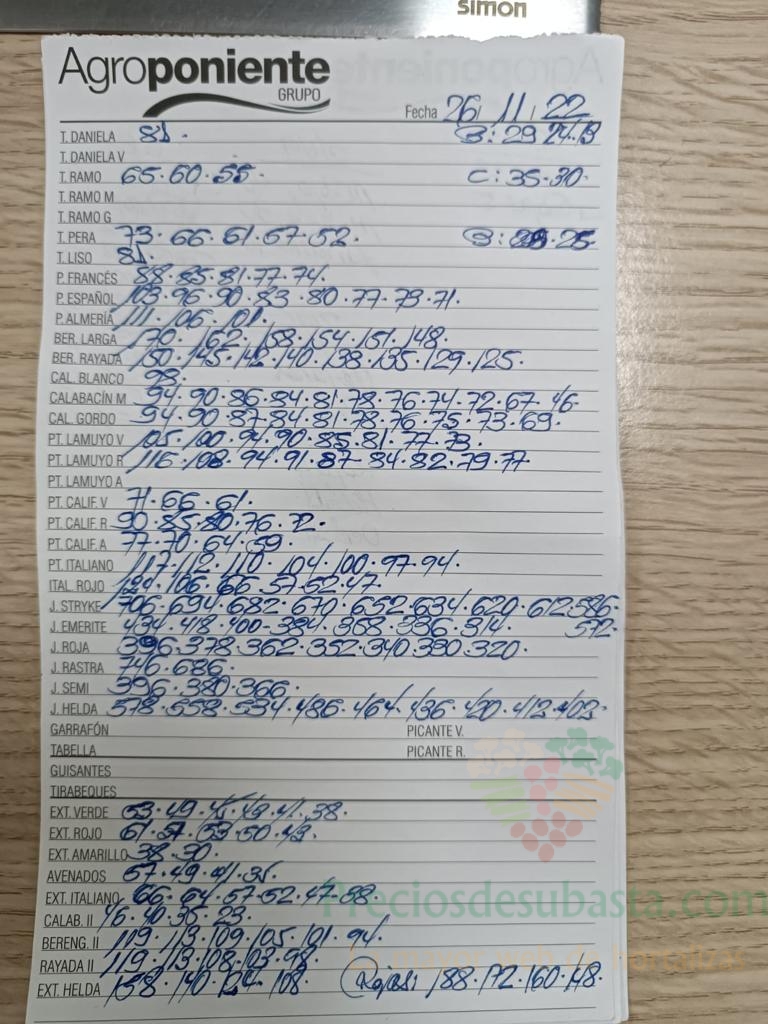 simon
Agroponiente
GRUPO
Fecha 26/ 11 / 22
T. DANIELA 81. B: 29 24.13
T. DANELA V
T. RAMO 65.60.55. C: 35.30.
T. RAMO M
T. RAMO G
T. PERA 73.66.61.57.52. B: 25
T. LISO 81.
P. FRANCÉS 88.85.81.77.74.
P. ESPAÑOL 103.96.90.83.80.77.73.71.
P. ALMERÍA 111.106.101.
BER. LARGA 170.162.158.154.151.148.
BER. RAYADA 150.145.142.140.138.135.129.125.
CAL. BLANCO 98.
CALABACÍN M 94.90.86.84.81.78.76.74.72.67.46.
CAL. GORDO 94.90.87.84.81.78.76.75.73.69.
PT. LAMUYO V 105.100.94.90.85.81.77.73.
PT. LAMUYO R 116.108.94.91.87.84.82.79.77
PT. LAMUYO A
PT. CALIF. V 71.66.61.
PT. CALIF. R 90.85.80.76.72.
PT. CALIF. A 77.70.64.59.
PT. ITALIANO 117.112.110.104.100.97.94.
ITAL. ROJO 106.66.57.52.47.
J. STRYKE 706.694.682.670.652.634.620.612.586.
572.
J. EMERITE 434.418.400.384.368.336.314.
J. ROJA 396.378.362.352.340.330.320.
J. RASTRA 746.686.
J. SEMI 396.380.366.
J. HELDA 578.558.534.486.464.436.420.412.402.
GARRAFÓN PICANTE V.
TABELLA PICANTE R.
GUISANTES
TIRABEQUES
EXT. VERDE 53.49.45.42.41.38.
EXT. ROJO 61.57.53.50.42.
EXT. AMARILLO 38.30.
AVENADOS 57.49.41.35.
EXT. ITALIANO 66.64.57.52.47.38.
CALAB. II 46.40.35.23.
BERENG. II 119.113.109.105.101.94.
RAYADA II 119.113.108.103.98.
EXT. HELDA 158.140.124.108. Rojas: 188.172.160.148.
Preciosdesubasta.com